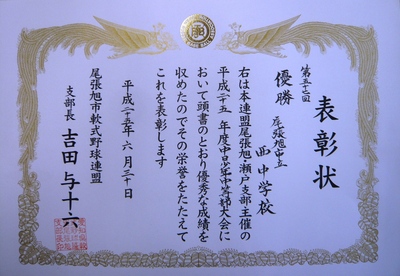 表彰状
第五十七回
優勝
尾張旭市立
西中学校
右は本連盟尾張旭・瀬戸支部主催の
平成二十五年度中日少年中等部大会に
おいて頭書のとおり優秀な成績を
収めたのでその栄誉をたたえて
これを表彰します
平成二十五年六月三十日
尾張旭市軟式野球連盟
支部長 吉田与十六